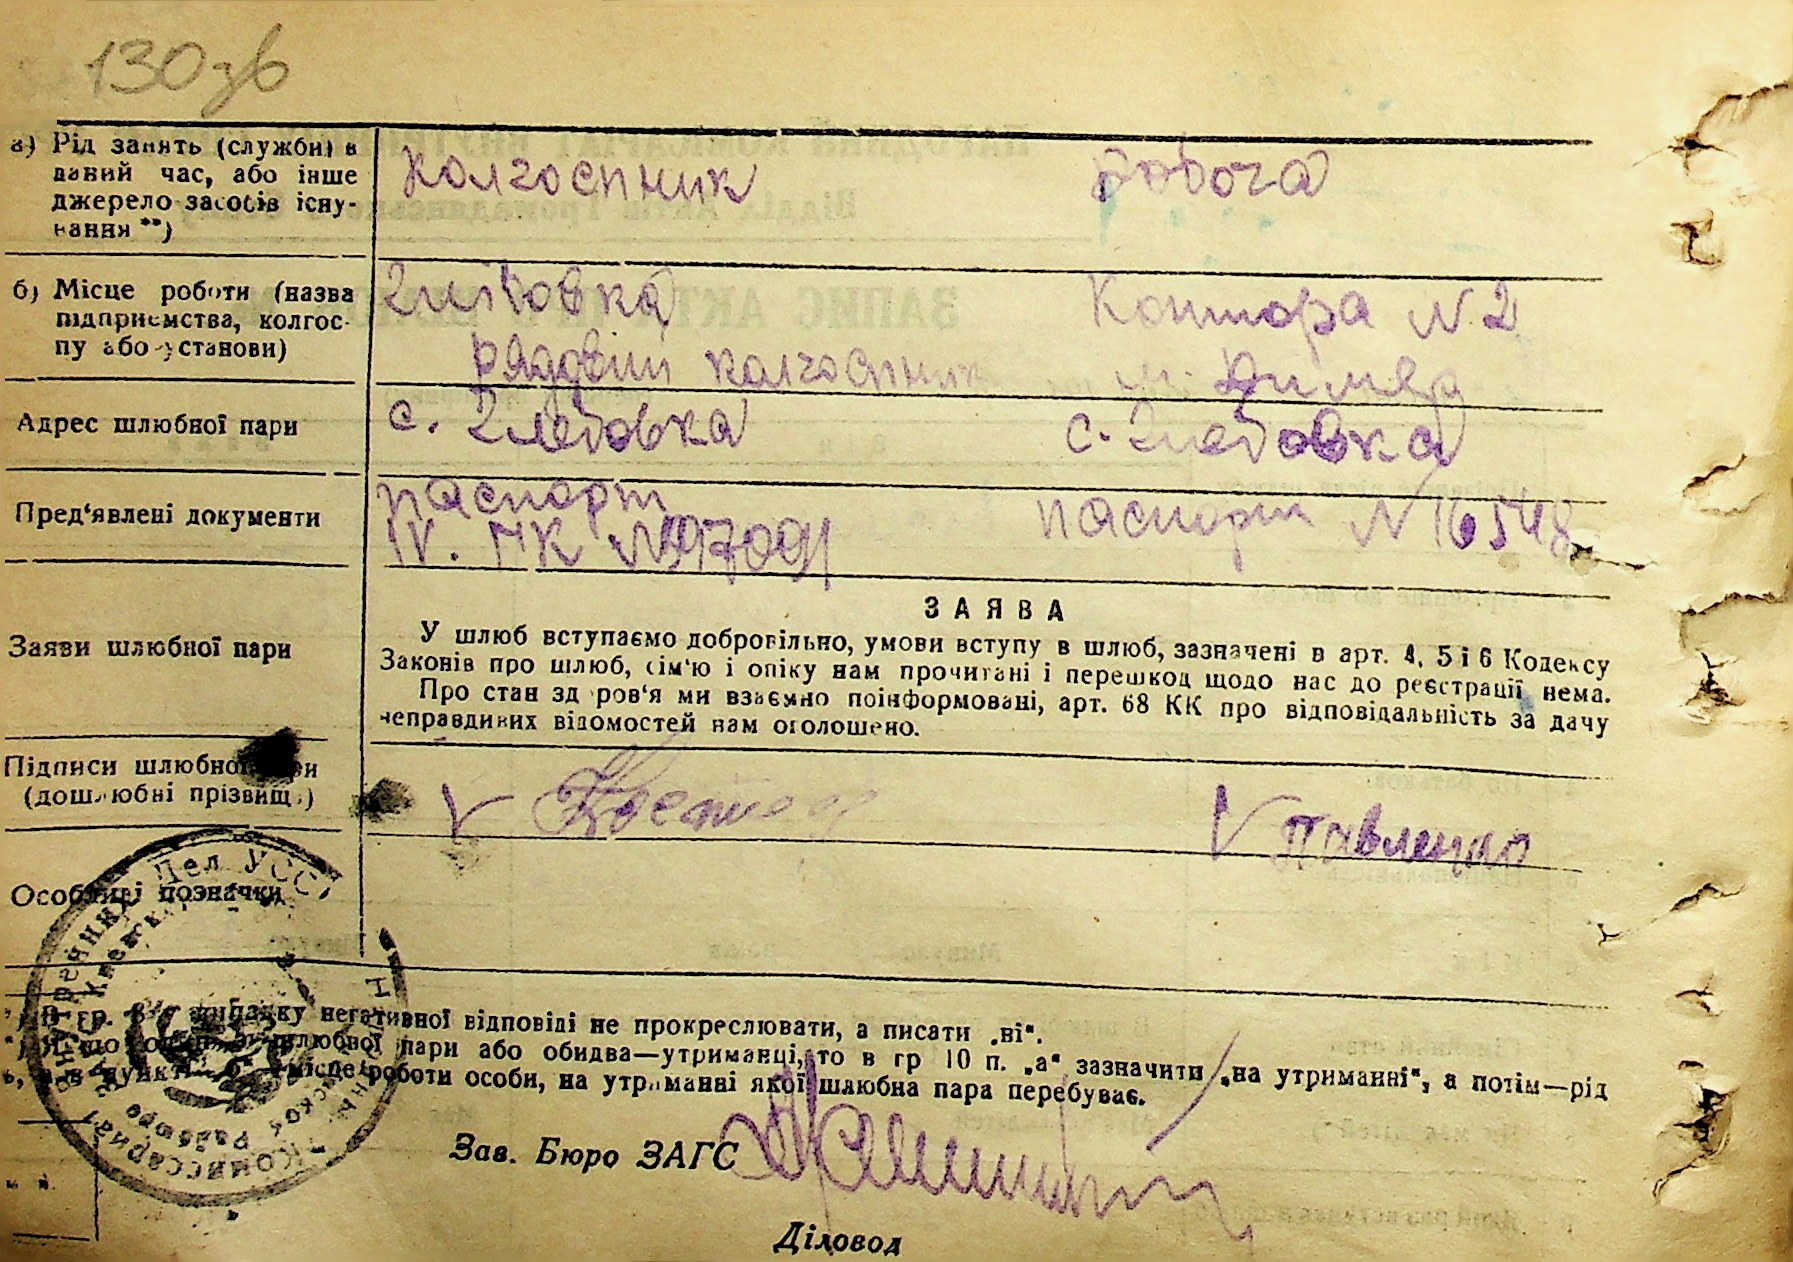 130зв
а) Рід занять (служби) в
даний час, або інше
джерело засобів існу-
вання **)
колгоспник
робоча
б) Місце роботи (назва
підприємства, колгос-
пу або установи)
Глібовка
рядовий колгоспник
Контора N 2
м. Димер
Адрес шлюбної пари
с. Глебовка
с. Глебовка
Пред'явлені документи
паспорт
IV.
паспорт N 16548
Заяви шлюбної пари
ЗАЯВА
У шлюб вступаємо добровільно, умови вступу в шлюб, зазначені в арт. 4, 5 і 6 Кодексу
Законів про шлюб, сім'ю і опіку нам прочитані і перешкод щодо нас до реєстрації нема.
Про стан здоров'я ми взаємно поінформовані, арт. 68 КК про відповідальність за дачу
неправдивих відомостей нам оголошено.
Підписи шлюбної пари
(дошлюбні прізвища)
V
V Павленко
Особливі позначки
В гр. випадку негативної відповіді не прокреслювати, а писати „ні".
шлюбної пари або обидва—утриманці, то в гр 10 п. „а" зазначити „на утриманні", а потім—рід
пункті місце роботи особи, на утриманні якої шлюбна пара перебуває.
Зав. Бюро ЗАГС
Діловод
Комиссариат Внутренних Дел УССР